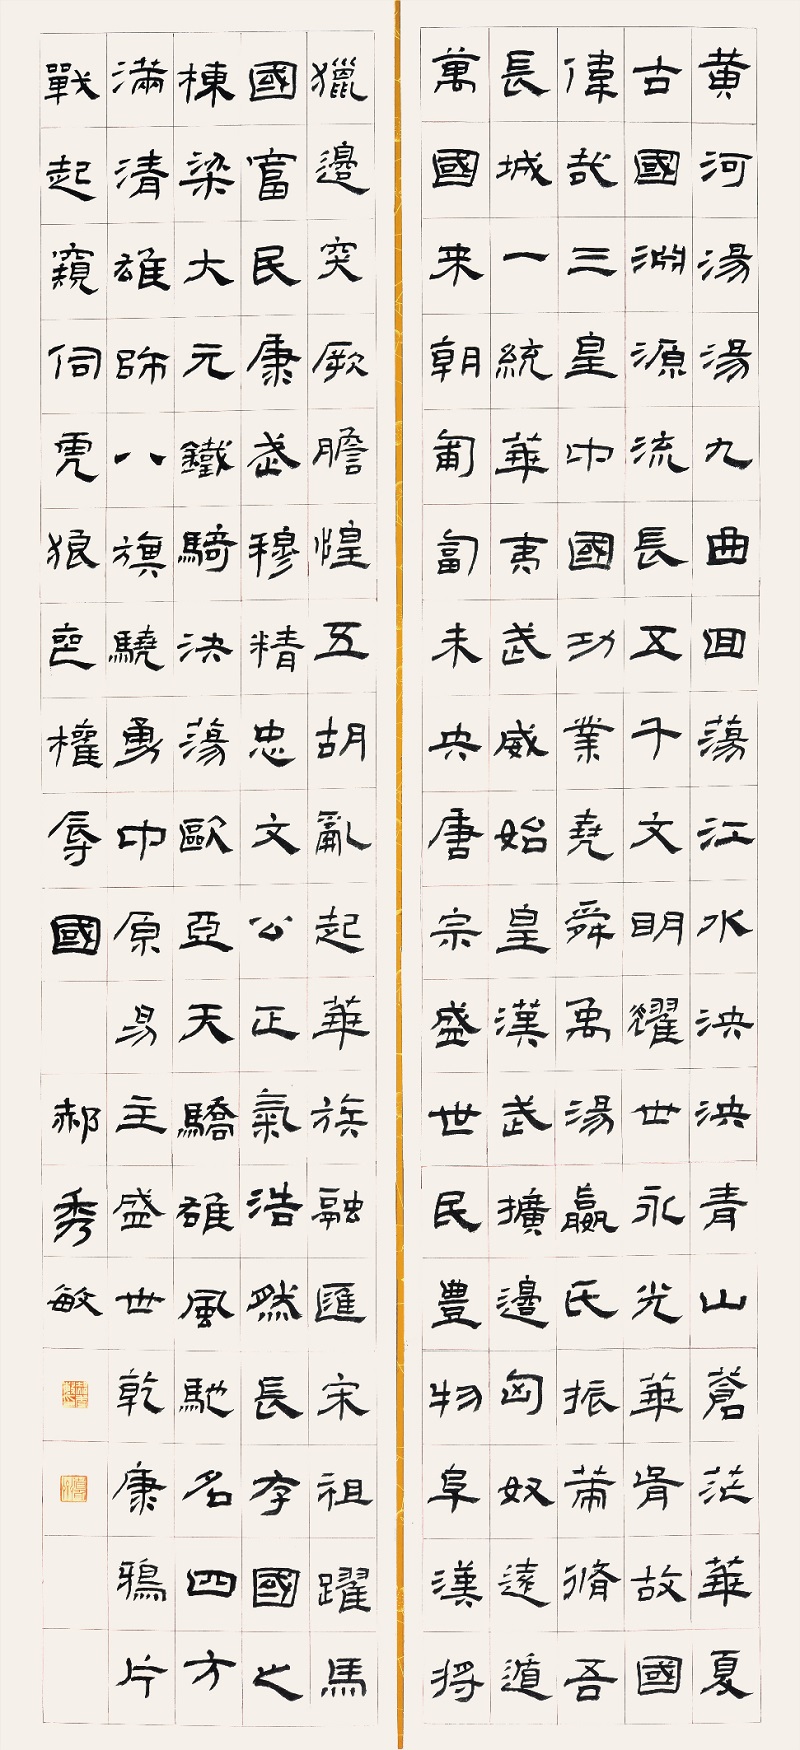 黄河湯湯九曲回蕩江水泱泱青山蒼茫華夏
古國淵源流長五千文明耀世永光華胥故國
偉哉三皇中國功業堯舜禹湯嬴氏振莆脩吾
長城一統華夷武威始皇漢武擴邊匈奴遠遁
萬國来朝匍匐未央唐宗盛世民豊物阜漢將
獵邊突厥膽惶五胡亂起華族融匯宋祖躍馬
國富民康武穆精忠文公正氣浩然長存國之
棟梁大元鐵騎決蕩歐亞天驕雄風馳名四方
滿清雄師八旗驍勇中原易主盛世乾康鴉片
戰起窺伺虎狼喪權辱國
郝秀敏